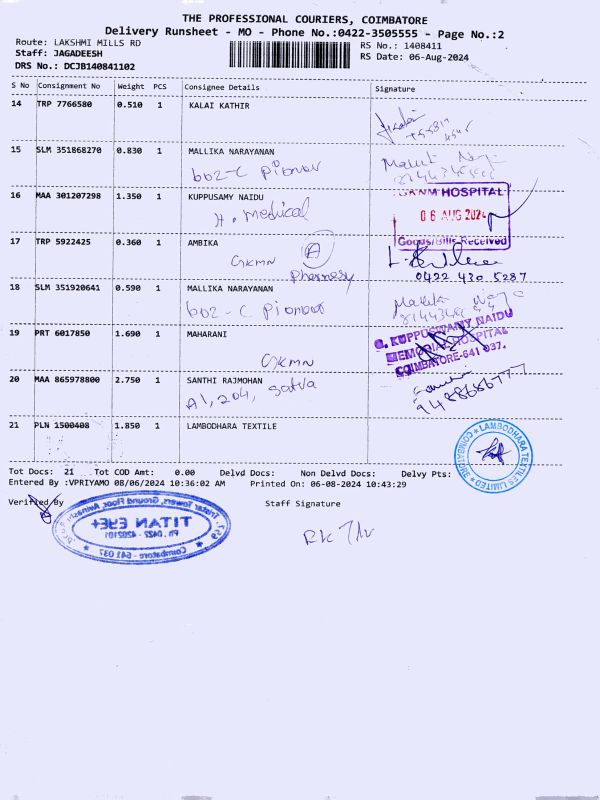 THE PROFESSIONAL COURIERS, COIMBATORE
Delivery Runsheet - MO - Phone No.:0422-3505555 - Page No.:2
Route: LAKSHMI MILLS RD
RS No.: 1408411
Staff: JAGADEESH
RS Date: 06-Aug-2024
DRS No.: DCJB140841102
S No Consignment No Weight PCS Consignee Details Signature
14 TRP 7766580 0.510 1 KALAI KATHIR
15 SLM 351868270 0.830 1 MALLIKA NARAYANAN
602-C Pioneer
16 MAA 301207298 1.350 1 KUPPUSAMY NAIDU
H. Medical
HOSPITAL
06 AUG 2024
Goods/Bills Received
17 TRP 5922425 0.360 1 AMBIKA
GKMN
Pharmacy
0422 430 5287
18 SLM 351920641 0.590 1 MALLIKA NARAYANAN
602-C Pioneer
19 PRT 6017850 1.690 1 MAHARANI
GKMN
G. KUPPUSWAMY NAIDU
MEMORIAL HOSPITAL
COIMBATORE-641 037.
20 MAA 865978800 2.750 1 SANTHI RAJMOHAN
A1, 204, Satva
21 PLN 1500408 1.850 1 LAMBODHARA TEXTILE
LAMBODHARA TEXTILES LIMITED
COIMBATORE
Tot Docs: 21 Tot COD Amt: 0.00 Delvd Docs: Non Delvd Docs: Delvy Pts:
Entered By :VPRIYAMO 08/06/2024 10:36:02 AM Printed On: 06-08-2024 10:43:29
Verified By Staff Signature
Tristar Towers, Ground Floor, Avinashi
TITAN EYE+
Ph. 0422 - 4202101
Coimbatore - 641 037